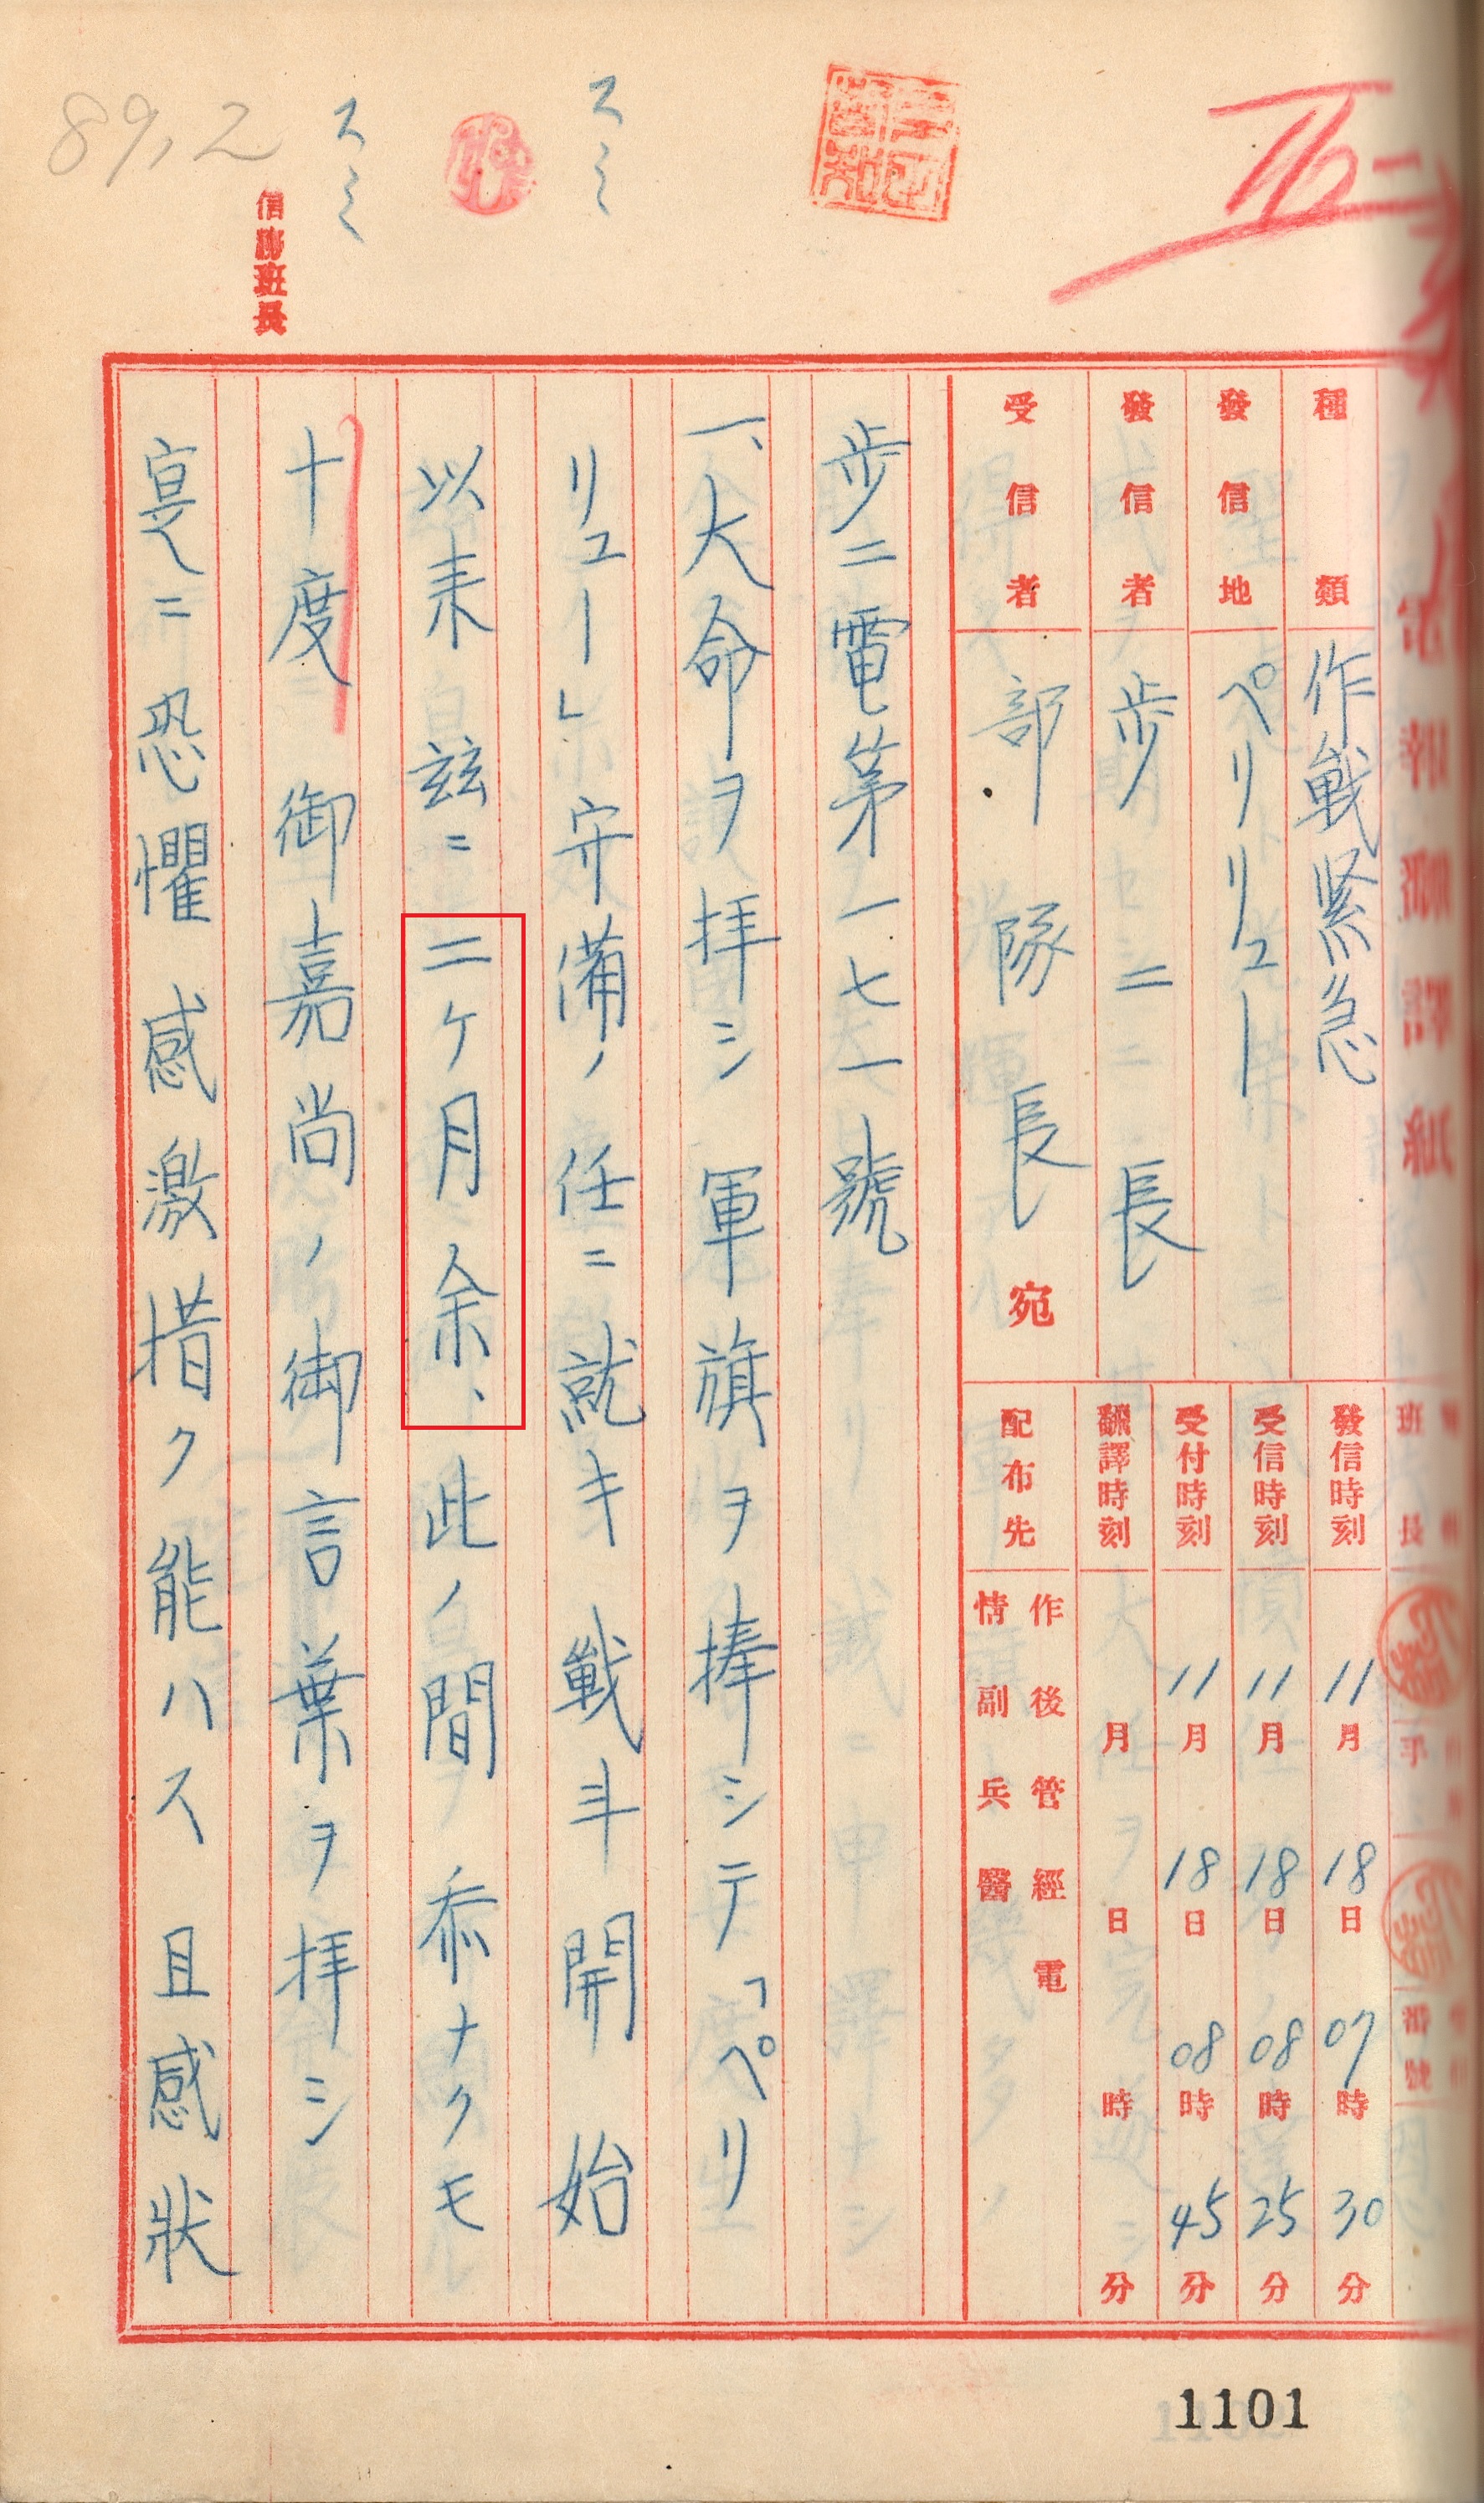 89,2
スミ
スミ
信務班長
種類 作戦緊急
發信地 ペリリュー
發信者 歩二長
受信者 部隊長宛
發信時刻 11月18日07時30分
受信時刻 11月18日08時25分
受付時刻 11月18日08時45分
飜譯時刻 月日時分
配布先 作後管經電
情副兵醫
歩二電第一七一號
一、大命ヲ拝シ軍旗ヲ捧シテ「ペリ
リュー」守備ノ任ニ就キ戦斗開始
以来茲ニ二ケ月余、此ノ間忝ナクモ
十度御嘉尚ノ御言葉ヲ拝シ
寔ニ恐懼感激措ク能ハス且感狀
1101